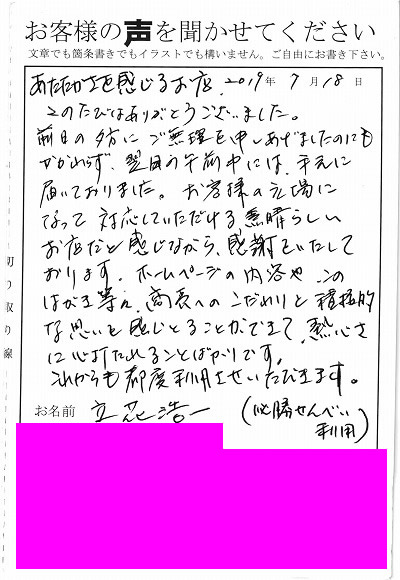 お客様の声を聞かせてください
文章でも箇条書きでもイラストでも構いません。ご自由にお書き下さい。
あたたかさを感じるお店。2019年7月18日
このたびはありがとうございました。
前日の夕方にご無理を申しあげましたのにも
かかわらず、翌日の午前中には、手元に
届いておりました。お客様の立場に
なって対応していただける素晴らしい
お店だと感じながら、感謝をいたして
おります。ホームページの内容や、この
はがき等、商売へのこだわりと積極的
な思いを感じとることができて、熱心さ
に心打たれることばかりです。
これからも都度利用させていただきます。
お名前 立花浩一
(必勝せんべい
利用)
切り取り線